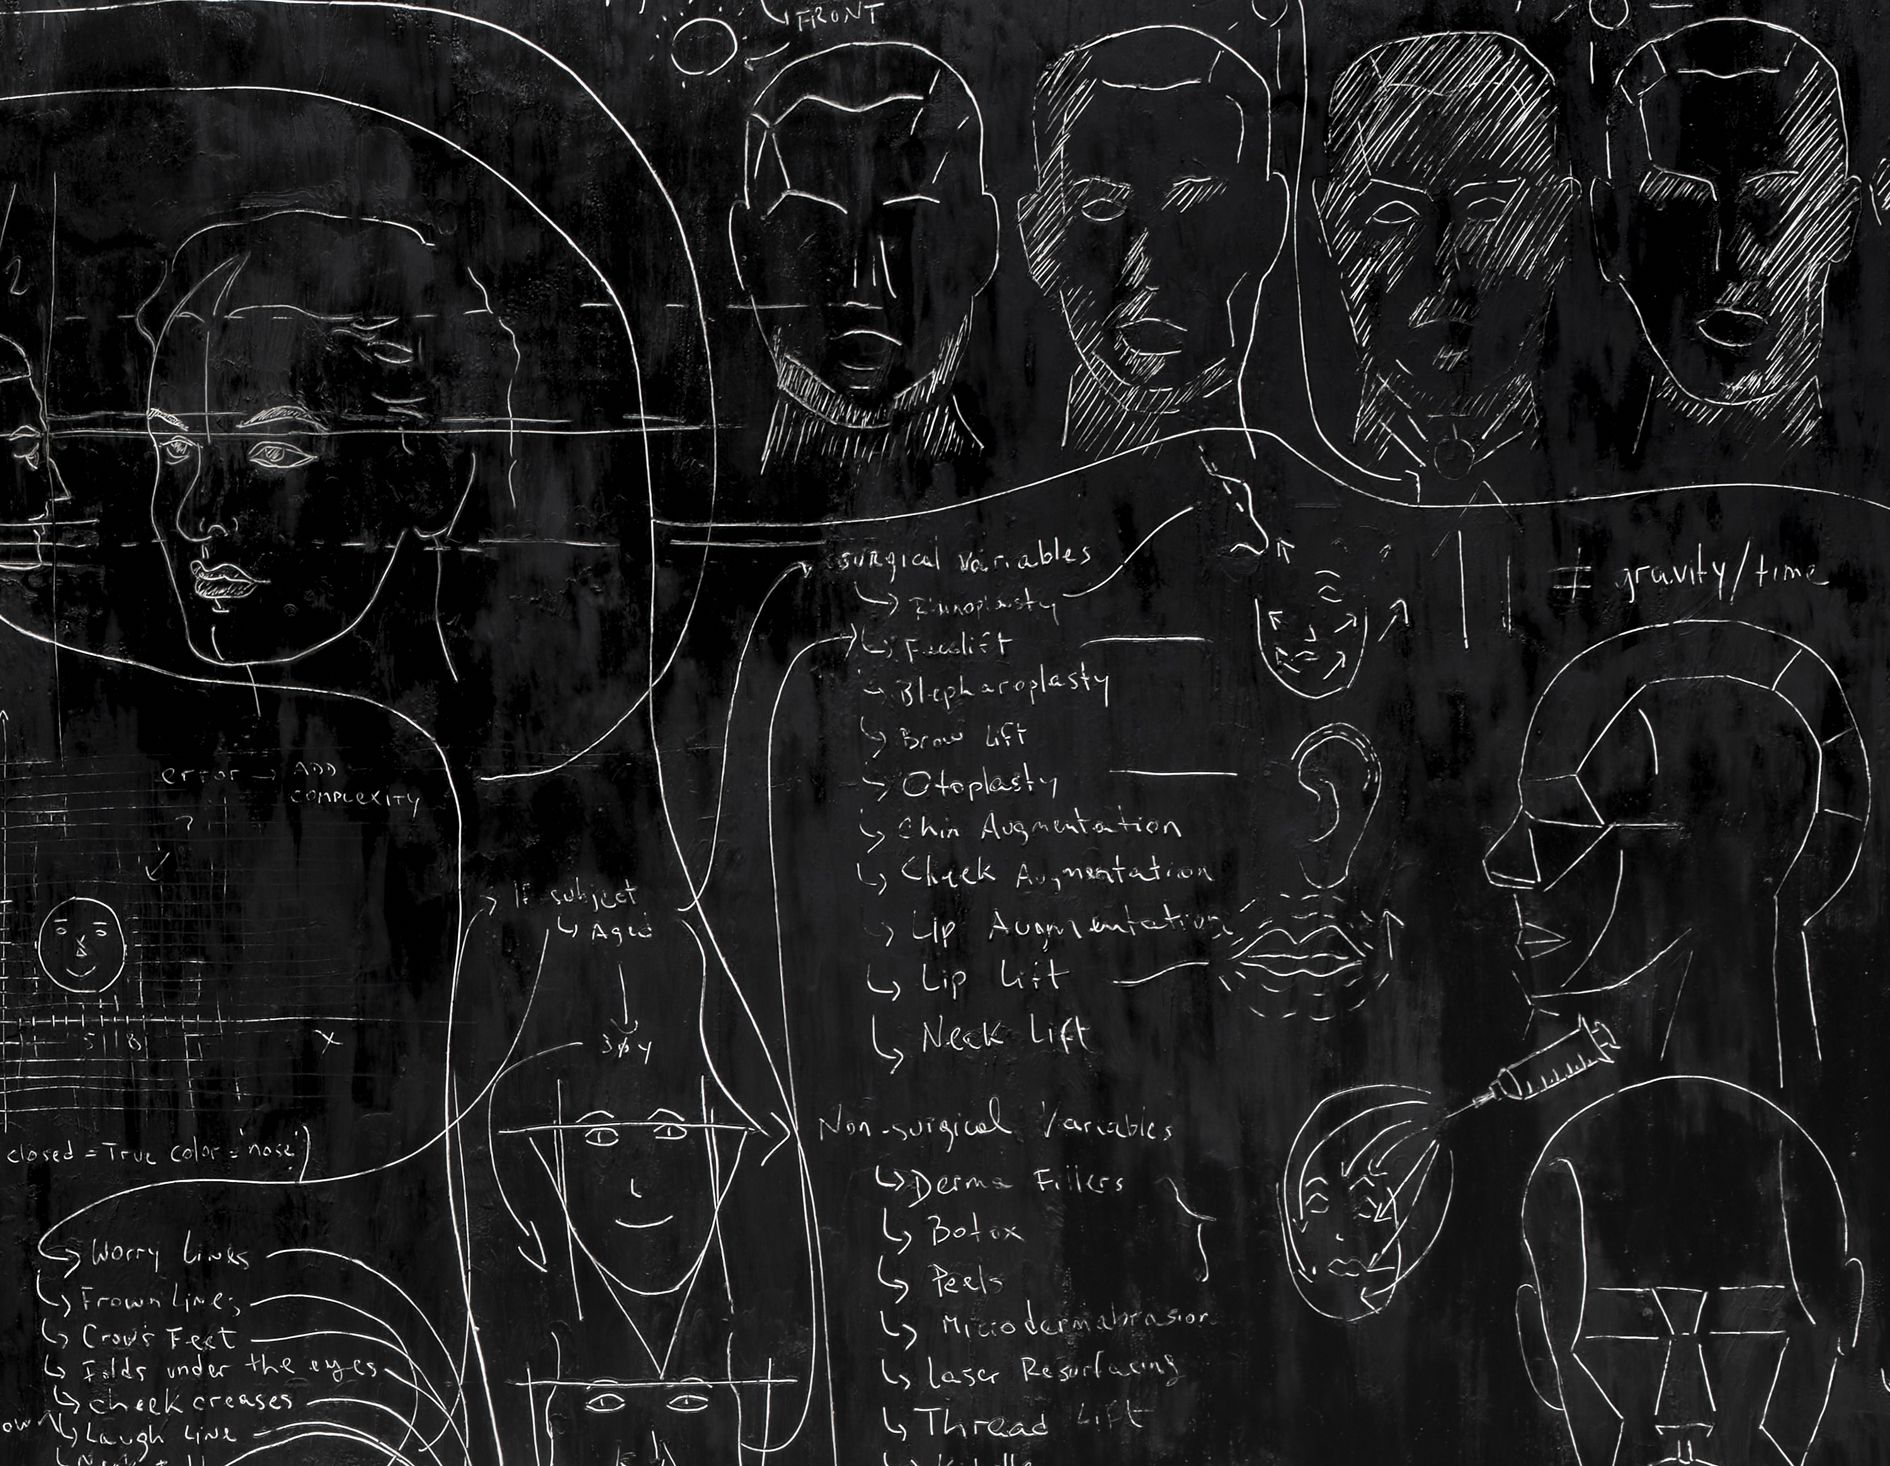 FRONT
2
surgical Variables
Facelift
Blepharoplasty
Brow Lift
Otoplasty
Chin Augmentation
Cheek Augmentation
Lip Augmentation
Lip Lift
Neck Lift
≠ gravity/time
error → ADD
COMPLEXITY
?
If subject
Aged
X
closed = True color = 'nose')
Worry Lines
Frown Lines
Crow's Feet
Folds under the eyes
Cheek creases
Laugh Line
Non-surgical Variables
Derma Fillers
Botox
Peels
Microdermabrasion
Laser Resurfacing
Thread Lift